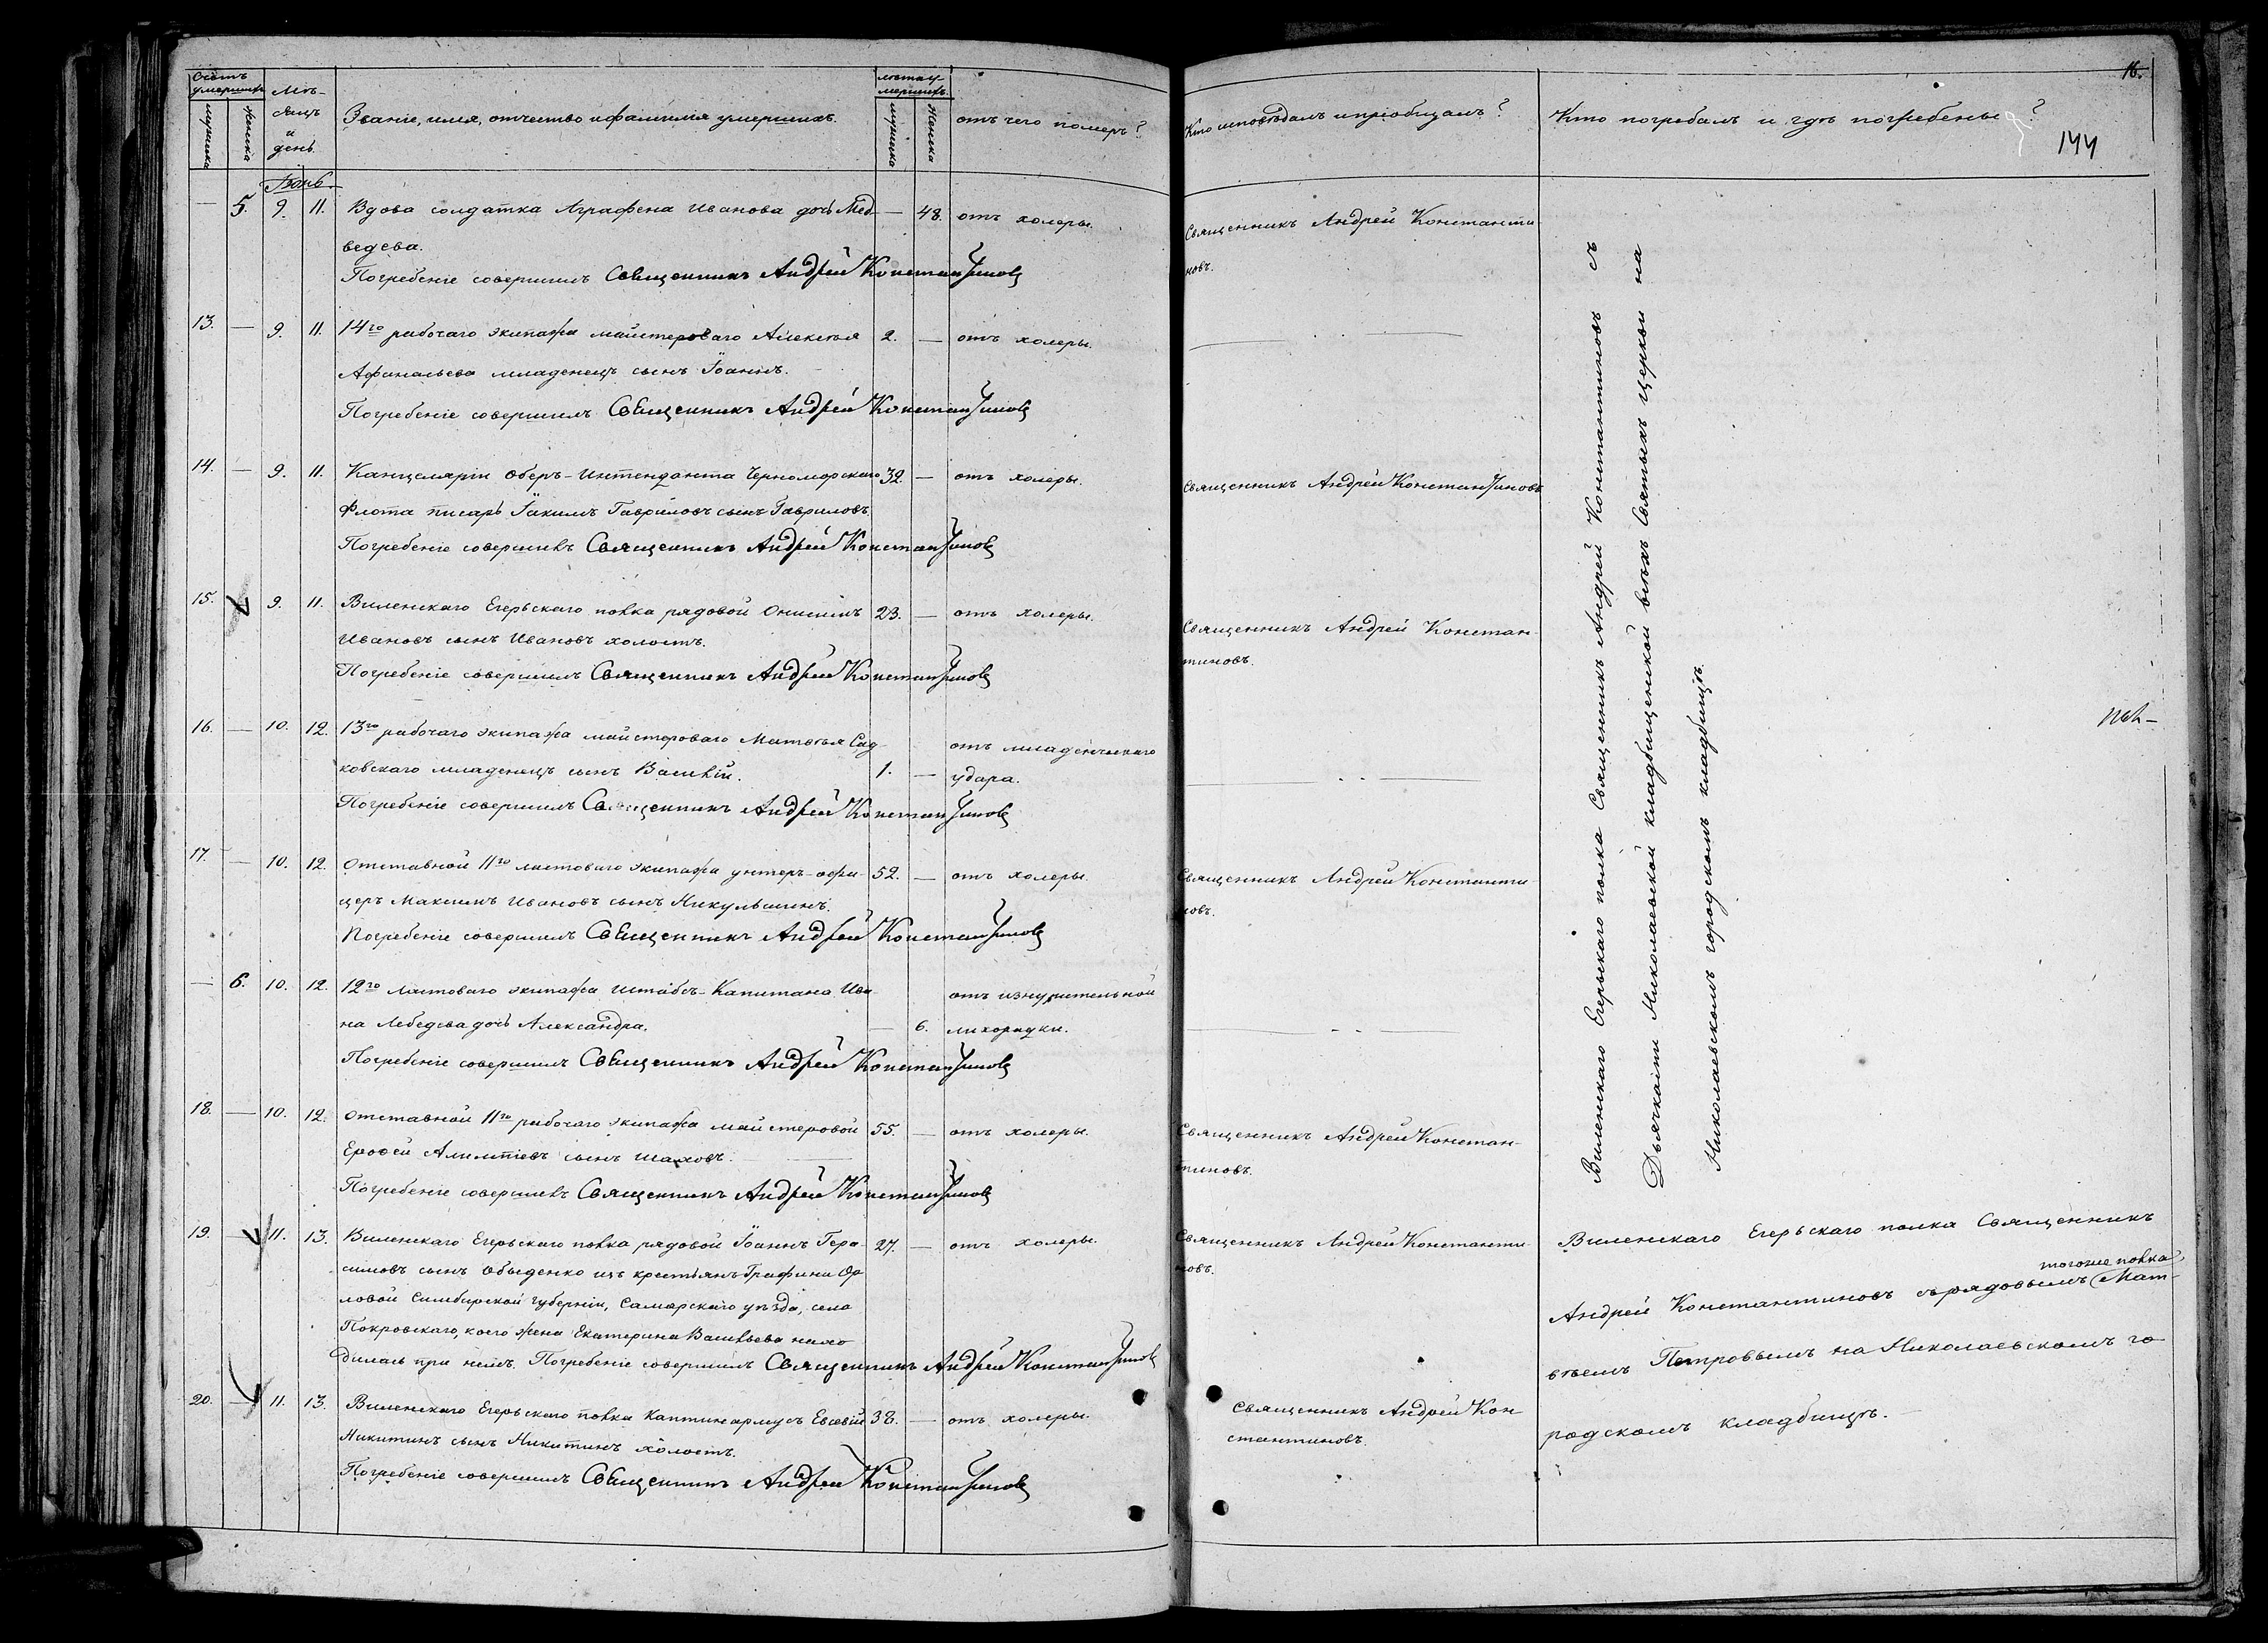 Счетъ умершихъ
мужска
женска
Мѣ-
сяцъ
и
день.
Званіе, имя, отчество и фамилія умершихъ.
лѣта у-
мершихъ.
мужска
женска
отъ чего померъ?
Кто исповѣдалъ и пріобщалъ?
Кто погребалъ и гдѣ погребены?
16.
144
Іюнь.
— 5. 9. 11. Вдова солдатка Аграфена Иванова дочь Мед- — 48. отъ холеры. Священникъ Андрей Константи-
ведева. новъ.
Погребеніе совершилъ Священникъ Андрей Константиновъ
13. — 9. 11. 14го рабочаго экипажа майстероваго Алексѣя 2. — отъ холеры. —
Афанасьева младенецъ сынъ Іоаннъ.
Погребеніе совершилъ Священникъ Андрей Константиновъ
14. — 9. 11. Канцеляріи Оберъ-Интенданта Черноморскаго 32. — отъ холеры. Священникъ Андрей Константиновъ
Флота писарь Іакимъ Гавриловъ сынъ Гавриловъ
Погребеніе совершилъ Священникъ Андрей Константиновъ
15. 9. 11. Виленскаго Егерьскаго полка рядовой Онисимъ 23. — отъ холеры. Священникъ Андрей Констан-
Ивановъ сынъ Ивановъ холостъ. тиновъ.
Погребеніе совершилъ Священникъ Андрей Константиновъ
16. — 10. 12. 13го рабочаго экипажа майстероваго Матвѣя Сад- отъ младенческаго
ковскаго младенецъ сынъ Василій. 1. — удара. —
Погребеніе совершилъ Священникъ Андрей Константиновъ
17. — 10. 12. Отставной 11го ластоваго экипажа унтеръ-офи- 52. — отъ холеры. Священникъ Андрей Константи-
церъ Максимъ Ивановъ сынъ Никульшинъ. новъ.
Погребеніе совершилъ Священникъ Андрей Константиновъ
— 6. 10. 12. 12го ластоваго экипажа Штабсъ-Капитана Ива- отъ изнурительной
на Лебедева дочь Александра. — 6. лихорадки. —
Погребеніе совершилъ Священникъ Андрей Константиновъ
18. — 10. 12. Отставной 11го рабочаго экипажа майстеровой 55. — отъ холеры. Священникъ Андрей Констан-
Ерофей Алимпіевъ сынъ Шаховъ. тиновъ.
Погребеніе совершилъ Священникъ Андрей Константиновъ
19. — 11. 13. Виленскаго Егерьскаго полка рядовой Іоаннъ Гера- 27. — отъ холеры. Священникъ Андрей Константи-
симовъ сынъ Обыденко изъ крестьянъ Графини Ор- новъ.
ловой Симбирской губерніи, Самарскаго уѣзда, села
Покровскаго, коего жена Екатерина Васильева нахо-
дилась при немъ. Погребеніе совершилъ Священникъ Андрей Константиновъ
20. — 11. 13. Виленскаго Егерьскаго полка Каптинармусъ Евсевій 38. — отъ холеры. Священникъ Андрей Кон-
Никитинъ сынъ Никитинъ холостъ. стантиновъ.
Погребеніе совершилъ Священникъ Андрей Константиновъ
Виленскаго Егерьскаго полка Священникъ Андрей Константиновъ съ
Дьячками Николаевской кладбищенской всѣхъ Святыхъ церкви на
Николаевскомъ городскомъ кладбищѣ.
Виленскаго Егерьскаго полка Священникъ
тогоже полка
Андрей Константиновъ съ рядовымъ Мат-
вѣемъ Петровымъ на Николаевскомъ го-
родскомъ кладбищѣ.